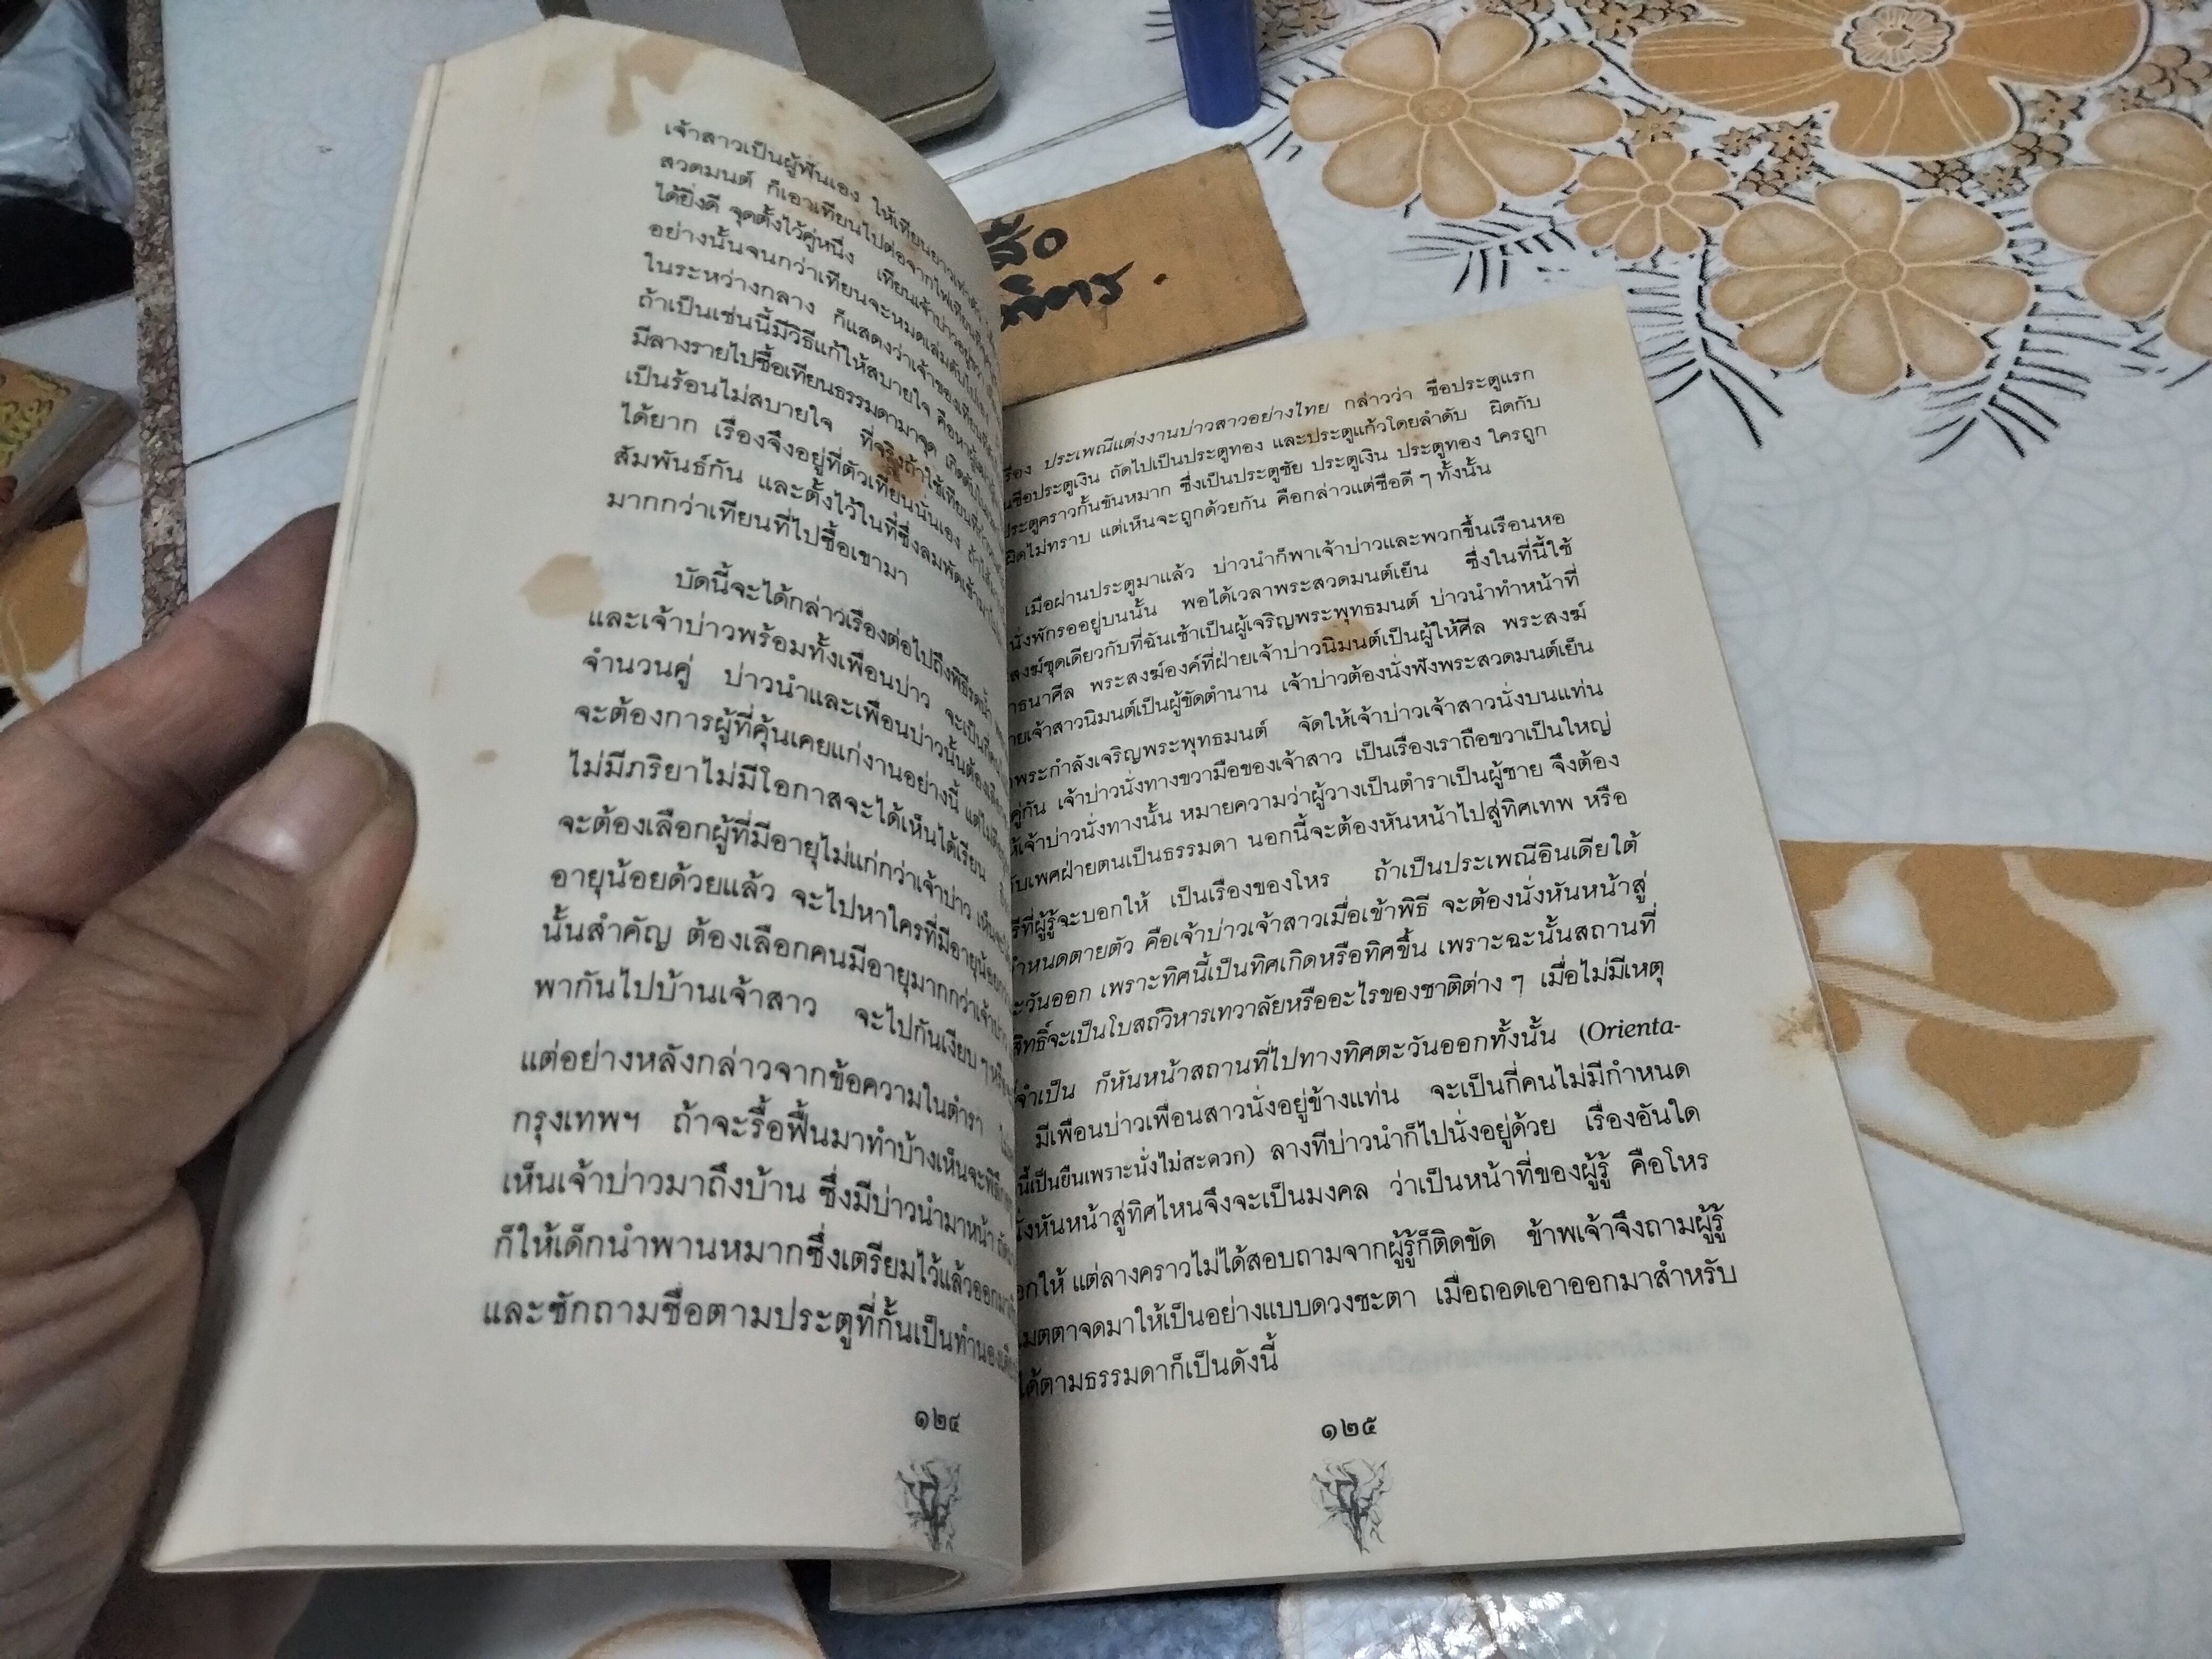 เจ้าสาวเป็นผู้ฟั่นเอง ให้เทียนยาวเท่าตัว
สวดมนต์ ก็เอาเทียนไปต่อจากไฟเทียนที่
ได้ยิ่งดี จุดตั้งไว้คู่หนึ่ง เทียนเจ้าบ่าวอยู่ขวา
อย่างนั้นจนกว่าเทียนจะหมดเล่มดับไปเอง
ในระหว่างกลาง ก็แสดงว่าเจ้าของเทียน
ถ้าเป็นเช่นนี้มีวิธีแก้ให้สบายใจ คือหา
มีลางรายไปซื้อเทียนธรรมดามาจุด เกิดดับ
เป็นร้อนไม่สบายใจ ที่จริงถ้าใช้เทียนที่
ได้ยาก เรื่องจึงอยู่ที่ตัวเทียนนั่นเอง
สัมพันธ์กัน และตั้งไว้ในที่ซึ่งลมพัดเข้ามา
มากกว่าเทียนที่ไปซื้อเขามา
บัดนี้จะได้กล่าวเรื่องต่อไปถึงพิธีรดน้ำ
และเจ้าบ่าวพร้อมทั้งเพื่อนบ่าว จะเป็นกี่คน
จำนวนคู่ บ่าวนำและเพื่อนบ่าวนั้นต้อง
จะต้องการผู้ที่คุ้นเคยแก่งานอย่างนี้ แต่ไม่
ไม่มีภริยาไม่มีโอกาสจะได้เห็นได้เรียน
จะต้องเลือกผู้ที่มีอายุไม่แก่กว่าเจ้าบ่าว เห็นจะ
อายุน้อยด้วยแล้ว จะไปหาใครที่มีอายุน้อยกว่า
นั้นสำคัญ ต้องเลือกคนมีอายุมากกว่าเจ้าบ่าว
พากันไปบ้านเจ้าสาว จะไปกันเงียบ ๆ
แต่อย่างหลังกล่าวจากข้อความในตำรา
กรุงเทพฯ ถ้าจะรื้อฟื้นมาทำบ้างเห็นจะพิลึก
เห็นเจ้าบ่าวมาถึงบ้าน ซึ่งมีบ่าวนำมาหน้า
ก็ให้เด็กนำพานหมากซึ่งเตรียมไว้แล้วออกมา
และซักถามชื่อตามประตูที่กั้นเป็นทำนอง
๑๒๔
สื่อ
เรื่อง ประเพณีแต่งงานบ่าวสาวอย่างไทย กล่าวว่า ชื่อประตูแรก
ชื่อประตูเงิน ถัดไปเป็นประตูทอง และประตูแก้วโดยลำดับ ผิดกับ
ประตูคราวกั้นขันหมาก ซึ่งเป็นประตูชัย ประตูเงิน ประตูทอง ใครถูก
ผิดไม่ทราบ แต่เห็นจะถูกด้วยกัน คือกล่าวแต่ชื่อดี ๆ ทั้งนั้น
เมื่อผ่านประตูมาแล้ว บ่าวนำก็พาเจ้าบ่าวและพวกขึ้นเรือนหอ
นั่งพักรออยู่บนนั้น พอได้เวลาพระสวดมนต์เย็น ซึ่งในที่นี้ใช้
สงฆ์ชุดเดียวกับที่ฉันเช้าเป็นผู้เจริญพระพุทธมนต์ บ่าวนำทำหน้าที่
ธนาศีล พระสงฆ์องค์ที่ฝ่ายเจ้าบ่าวนิมนต์เป็นผู้ให้ศีล พระสงฆ์
ายเจ้าสาวนิมนต์เป็นผู้ขัดตำนาน เจ้าบ่าวต้องนั่งฟังพระสวดมนต์เย็น
พระกำลังเจริญพระพุทธมนต์ จัดให้เจ้าบ่าวเจ้าสาวนั่งบนแท่น
คู่กัน เจ้าบ่าวนั่งทางขวามือของเจ้าสาว เป็นเรื่องเราถือขวาเป็นใหญ่
ให้เจ้าบ่าวนั่งทางนั้น หมายความว่าผู้วางเป็นตำราเป็นผู้ชาย จึงต้อง
ับเพศฝ่ายตนเป็นธรรมดา นอกนี้จะต้องหันหน้าไปสู่ทิศเทพ หรือ
รีที่ผู้รู้จะบอกให้ เป็นเรื่องของโหร ถ้าเป็นประเพณีอินเดียใต้
กำหนดตายตัว คือเจ้าบ่าวเจ้าสาวเมื่อเข้าพิธี จะต้องนั่งหันหน้าสู่
ะวันออก เพราะทิศนี้เป็นทิศเกิดหรือทิศขึ้น เพราะฉะนั้นสถานที่
สิทธิ์จะเป็นโบสถ์วิหารเทวาลัยหรืออะไรของชาติต่าง ๆ เมื่อไม่มีเหตุ
จำเป็น ก็หันหน้าสถานที่ไปทางทิศตะวันออกทั้งนั้น (Orienta-
มีเพื่อนบ่าวเพื่อนสาวนั่งอยู่ข้างแท่น จะเป็นกี่คนไม่มีกำหนด
นี้เป็นยืนเพราะนั่งไม่สะดวก) ลางทีบ่าวนำก็ไปนั่งอยู่ด้วย เรื่องอันใด
นั่งหันหน้าสู่ทิศไหนจึงจะเป็นมงคล ว่าเป็นหน้าที่ของผู้รู้ คือโหร
อกให้ แต่ลางคราวไม่ได้สอบถามจากผู้รู้ก็ติดขัด ข้าพเจ้าจึงถามผู้รู้
เมตตาจดมาให้เป็นอย่างแบบดวงชะตา เมื่อถอดเอาออกมาสำหรับ
ได้ตามธรรมดาก็เป็นดังนี้
๑๒๕